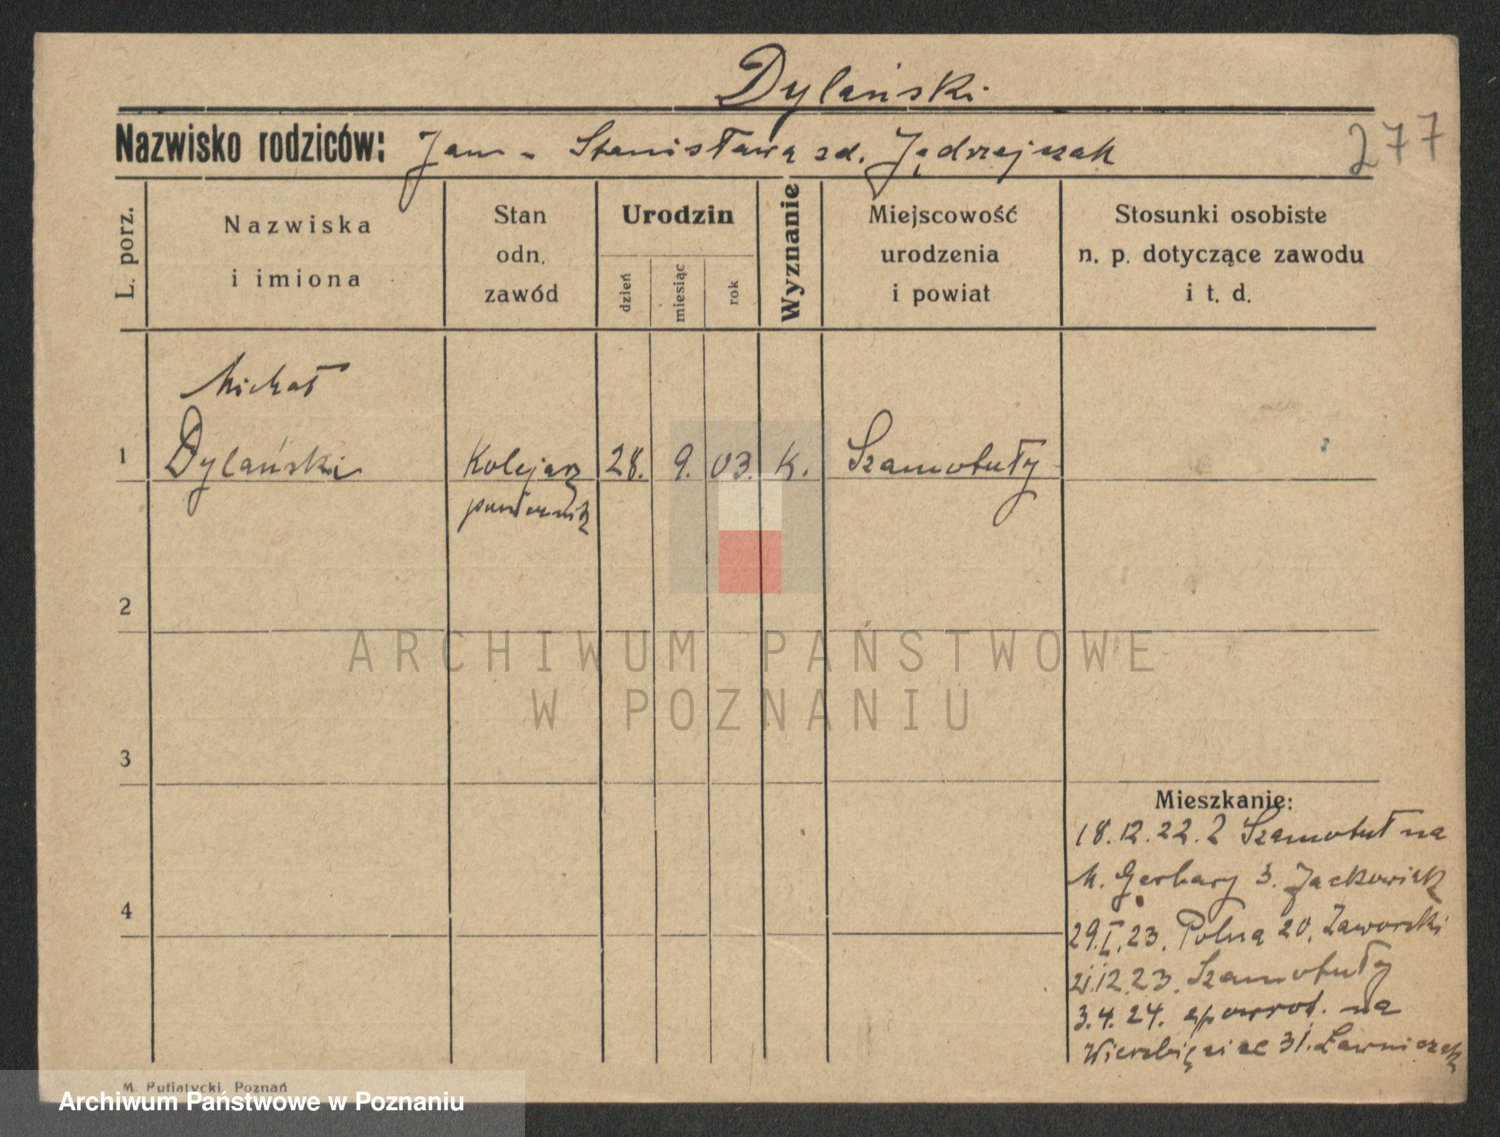 Dylański
Nazwisko rodziców: Jan - Stanisława zd. Jędrzejczak
277
L. porz.
Nazwiska
i imiona
Stan
odn.
zawód
Urodzin
dzień
miesiąc
rok
Wyznanie
Miejscowość
urodzenia
i powiat
Stosunki osobiste
n. p. dotyczące zawodu
i t. d.
Michał
1 Dylański Kolejarz 28. 9. 03. K. Szamotuły
2
ARCHIWUM PAŃSTWOWE
W POZNANIU
3
Mieszkanie:
18.12.22. z Szamotuł na
M. Garbary 3. Jackowiak
4
29.I.23. Polna 20, Zaworski
21.12.23. Szamotuły
3.4.24. spowrot. na
Wierzbięcice 31. Ławniczak
M. Putiatycki, Poznań
Archiwum Państwowe w Poznaniu